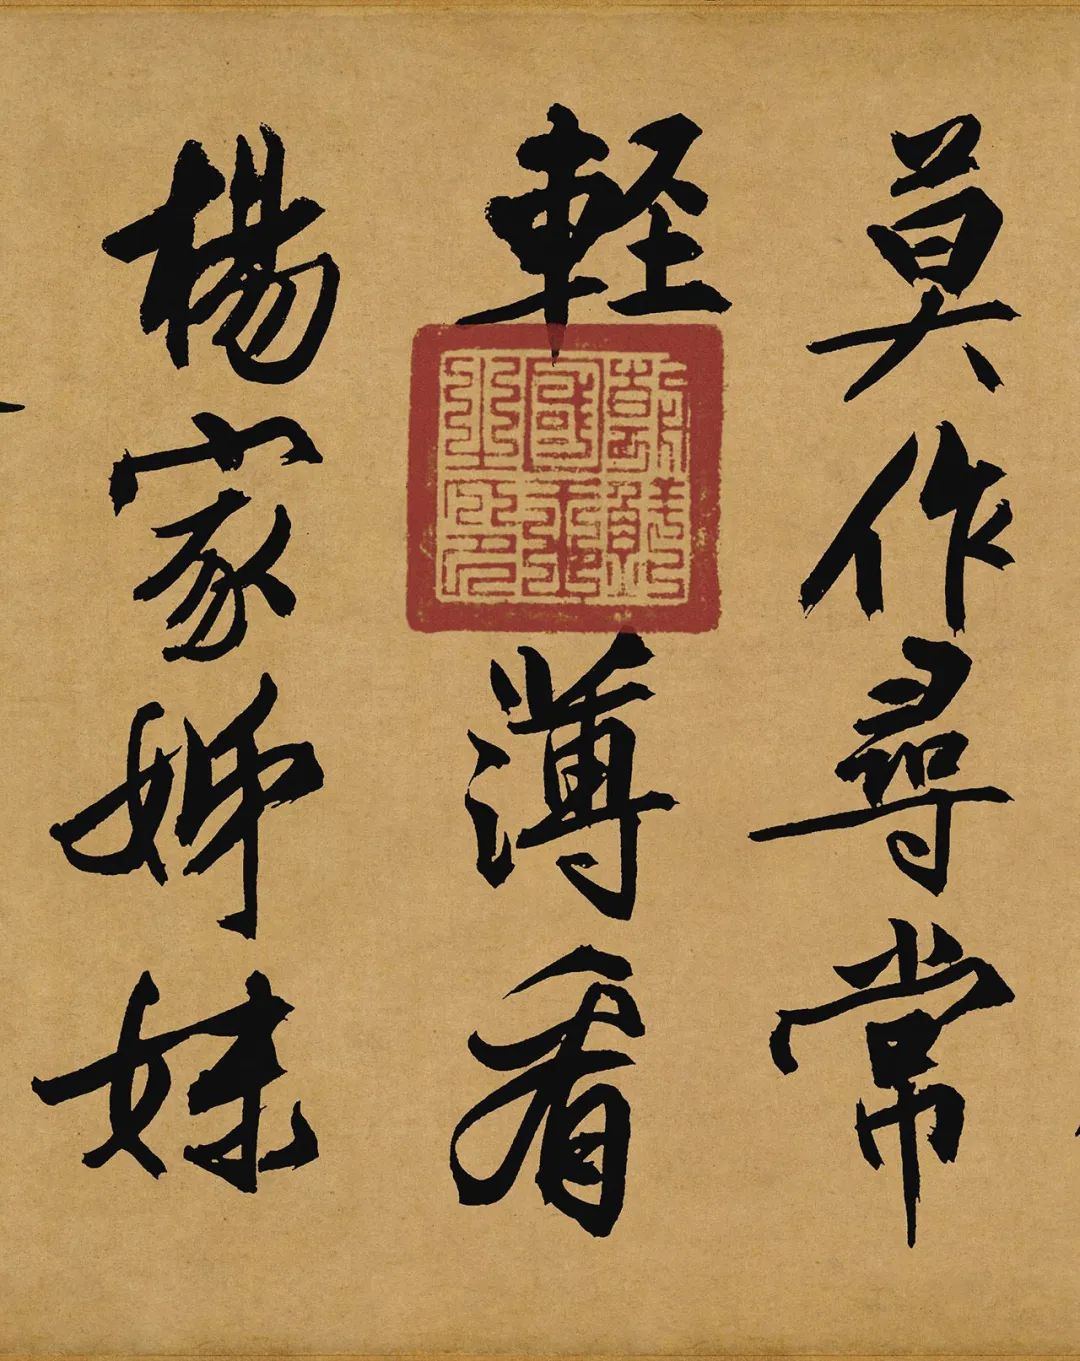 莫作尋常
輕薄看
楊家姊妹